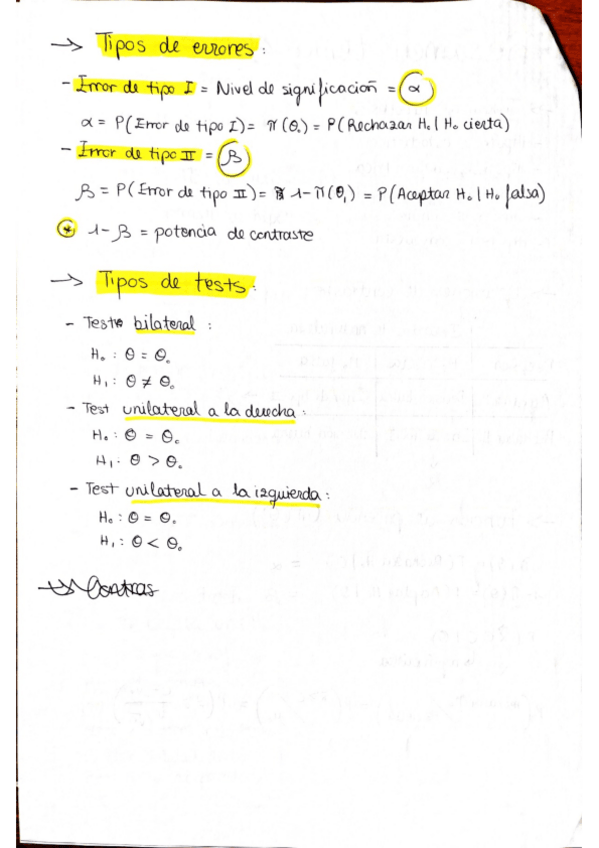 → Tipos de errores:
- Error de tipo I = Nivel de significación = α
α = P(Error de tipo I) = π(θ₀) = P(Rechazar H₀ | H₀ cierta)
- Error de tipo II = β
β = P(Error de tipo II) = 1-π(θ₁) = P(Aceptar H₀ | H₀ falsa)
* 1-β = potencia de contraste
→ Tipos de tests:
- Test bilateral:
H₀: θ = θ₀
H₁: θ ≠ θ₀
- Test unilateral a la derecha:
H₀: θ = θ₀
H₁: θ > θ₀
- Test unilateral a la izquierda:
H₀: θ = θ₀
H₁: θ < θ₀
→ Contras